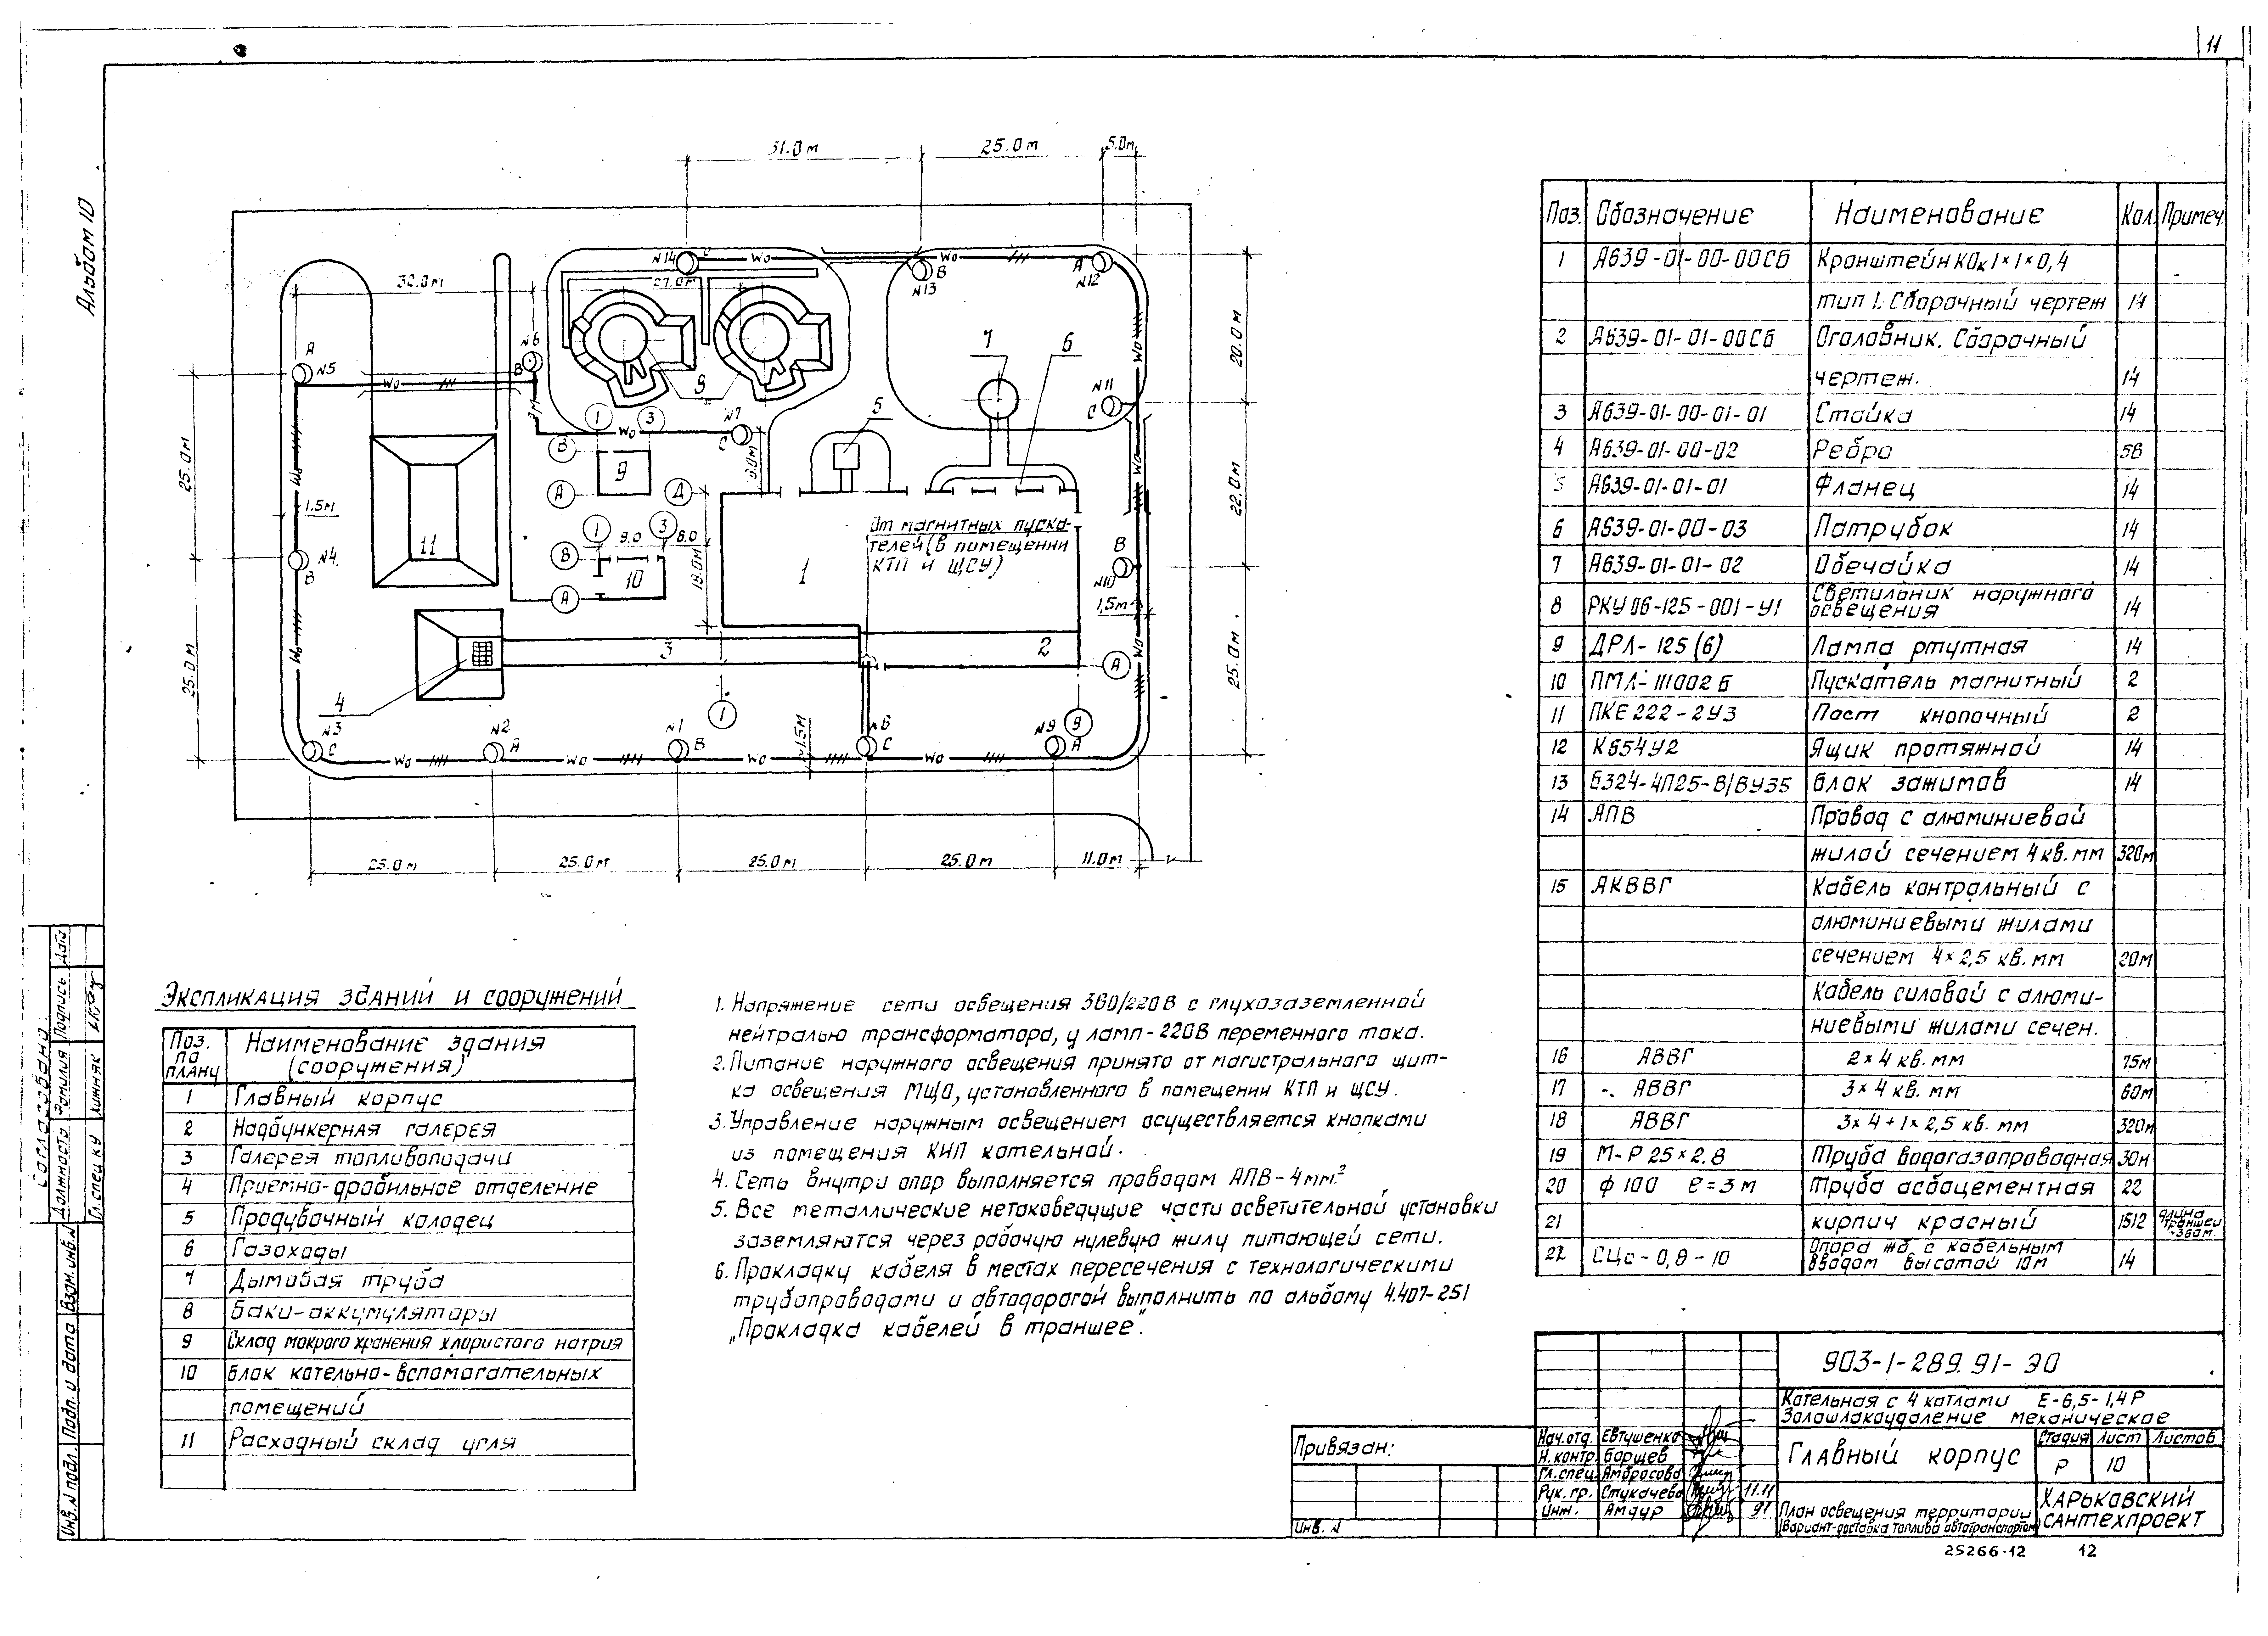 11
Альбом 10
31.0м
25.0м
5.0м
N14
С
Wo
Wo
В
N13
А
N12
27.0м
20.0м
А
N5
Wo
N6
В
8
7
6
N11
С
5
1
3
Wo
N7
С
В
9
А
Д
25.0м
1.5м
11
N4.
В
1
9.0
3
6.0
В
10
А
18.0м
1
От магнитных пуска-
телей (в помещении
КТП и ЩСУ)
22.0м
В
N10
1,5м
Wo
3
2
А
25.0м
25.0м
4
N3
С
N2
А
N1
В
1
1.5м
N8
С
N9
А
9
Wo
Wo
Wo
Wo
25.0м
25.0м
25.0м
25.0м
11.0м
Поз. Обозначение Наименование Кол. Примеч.
1 А639-01-00-00СБ Кронштейн КОк1×1×0,4
тип 1. Сборочный чертеж 14
2 А639-01-01-00СБ Оголовник. Сборочный
чертеж. 14
3 А639-01-00-01-01 Стойка 14
4 А639-01-00-02 Ребро 56
5 А639-01-01-01 Фланец 14
6 А639-01-00-03 Патрубок 14
7 А639-01-01-02 Обечайка 14
8 РКУ06-125-001-У1 Светильник наружного
освещения 14
9 ДРЛ-125(6) Лампа ртутная 14
10 ПМЛ-111002Б Пускатель магнитный 2
11 ПКЕ222-2У3 Пост кнопочный 2
12 К654У2 Ящик протяжной 14
13 Б324-4П25-В/ВУ35 Блок зажимов 14
14 АПВ Провод с алюминиевой
жилой сечением 4 кв. мм 320м
15 АКВВГ Кабель контрольный с
алюминиевыми жилами
сечением 4×2,5 кв. мм 20м
Кабель силовой с алюми-
ниевыми жилами сечен.
16 АВВГ 2×4 кв. мм 75м
17 АВВГ 3×4 кв. мм 60м
18 АВВГ 3×4+1×2,5 кв. мм 320м
19 М-Р25×2.8 Труба водогазопроводная 30м
20 ф100 ℓ=3м Труба асбоцементная 22
21 кирпич красный 1512 длина траншеи -360м.
22 СЦс-0,8-10 Опора жб с кабельным
вводом высотой 10м 14
Экспликация зданий и сооружений
Поз. по плану Наименование здания (сооружения)
1 Главный корпус
2 Надбункерная галерея
3 Галерея топливоподачи
4 Приемно-дробильное отделение
5 Продувочный колодец
6 Газоходы
7 Дымовая труба
8 Баки-аккумуляторы
9 Склад мокрого хранения хлористого натрия
10 Блок котельно-вспомогательных
помещений
11 Расходный склад угля
1. Напряжение сети освещения 380/220В с глухозаземленной
нейтралью трансформатора, у ламп-220В переменного тока.
2. Питание наружного освещения принято от магистрального щит-
ка освещения МЩО, установленного в помещении КТП и ЩСУ.
3. Управление наружным освещением осуществляется кнопками
из помещения КИП котельной.
4. Сеть внутри опор выполняется проводом АПВ-4мм².
5. Все металлические нетоковедущие части осветительной установки
заземляются через рабочую нулевую жилу питающей сети.
6. Прокладку кабеля в местах пересечения с технологическими
трубопроводами и автодорогой выполнить по альбому 4.407-251
„Прокладка кабелей в траншее".
Согласовано:
Должность Фамилия Подпись Дата
Гл.спец КУ Химняк
Инв.N подл. Подп. и дата Взам.инв.N
Привязан:
Инв. N
903-1-289.91-ЭО
Котельная с 4 котлами Е-6,5-1,4Р
Золошлакоудаление механическое
Нач.отд. Евтушенко
Н.контр. Борщев
Гл.спец. Амбросова
Рук.гр. Стукачева 11.11
Инж. Амдур 91
Главный корпус
Стадия Лист Листов
Р 10
План освещения территории
(Вариант-доставка топлива автотранспортом)
ХАРЬКОВСКИЙ
САНТЕХПРОЕКТ
25266-12 12